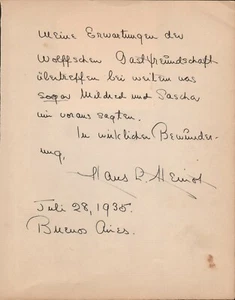 Meine Erwartungen der
Wolffschen Gastfreundschaft
übertreffen bei weitem was
sogar Mildred und Sascha
mir voraus sagten.
In wirklicher Bewunder-
ung,
Hans
Juli 28, 1935.
Buenos Aires.